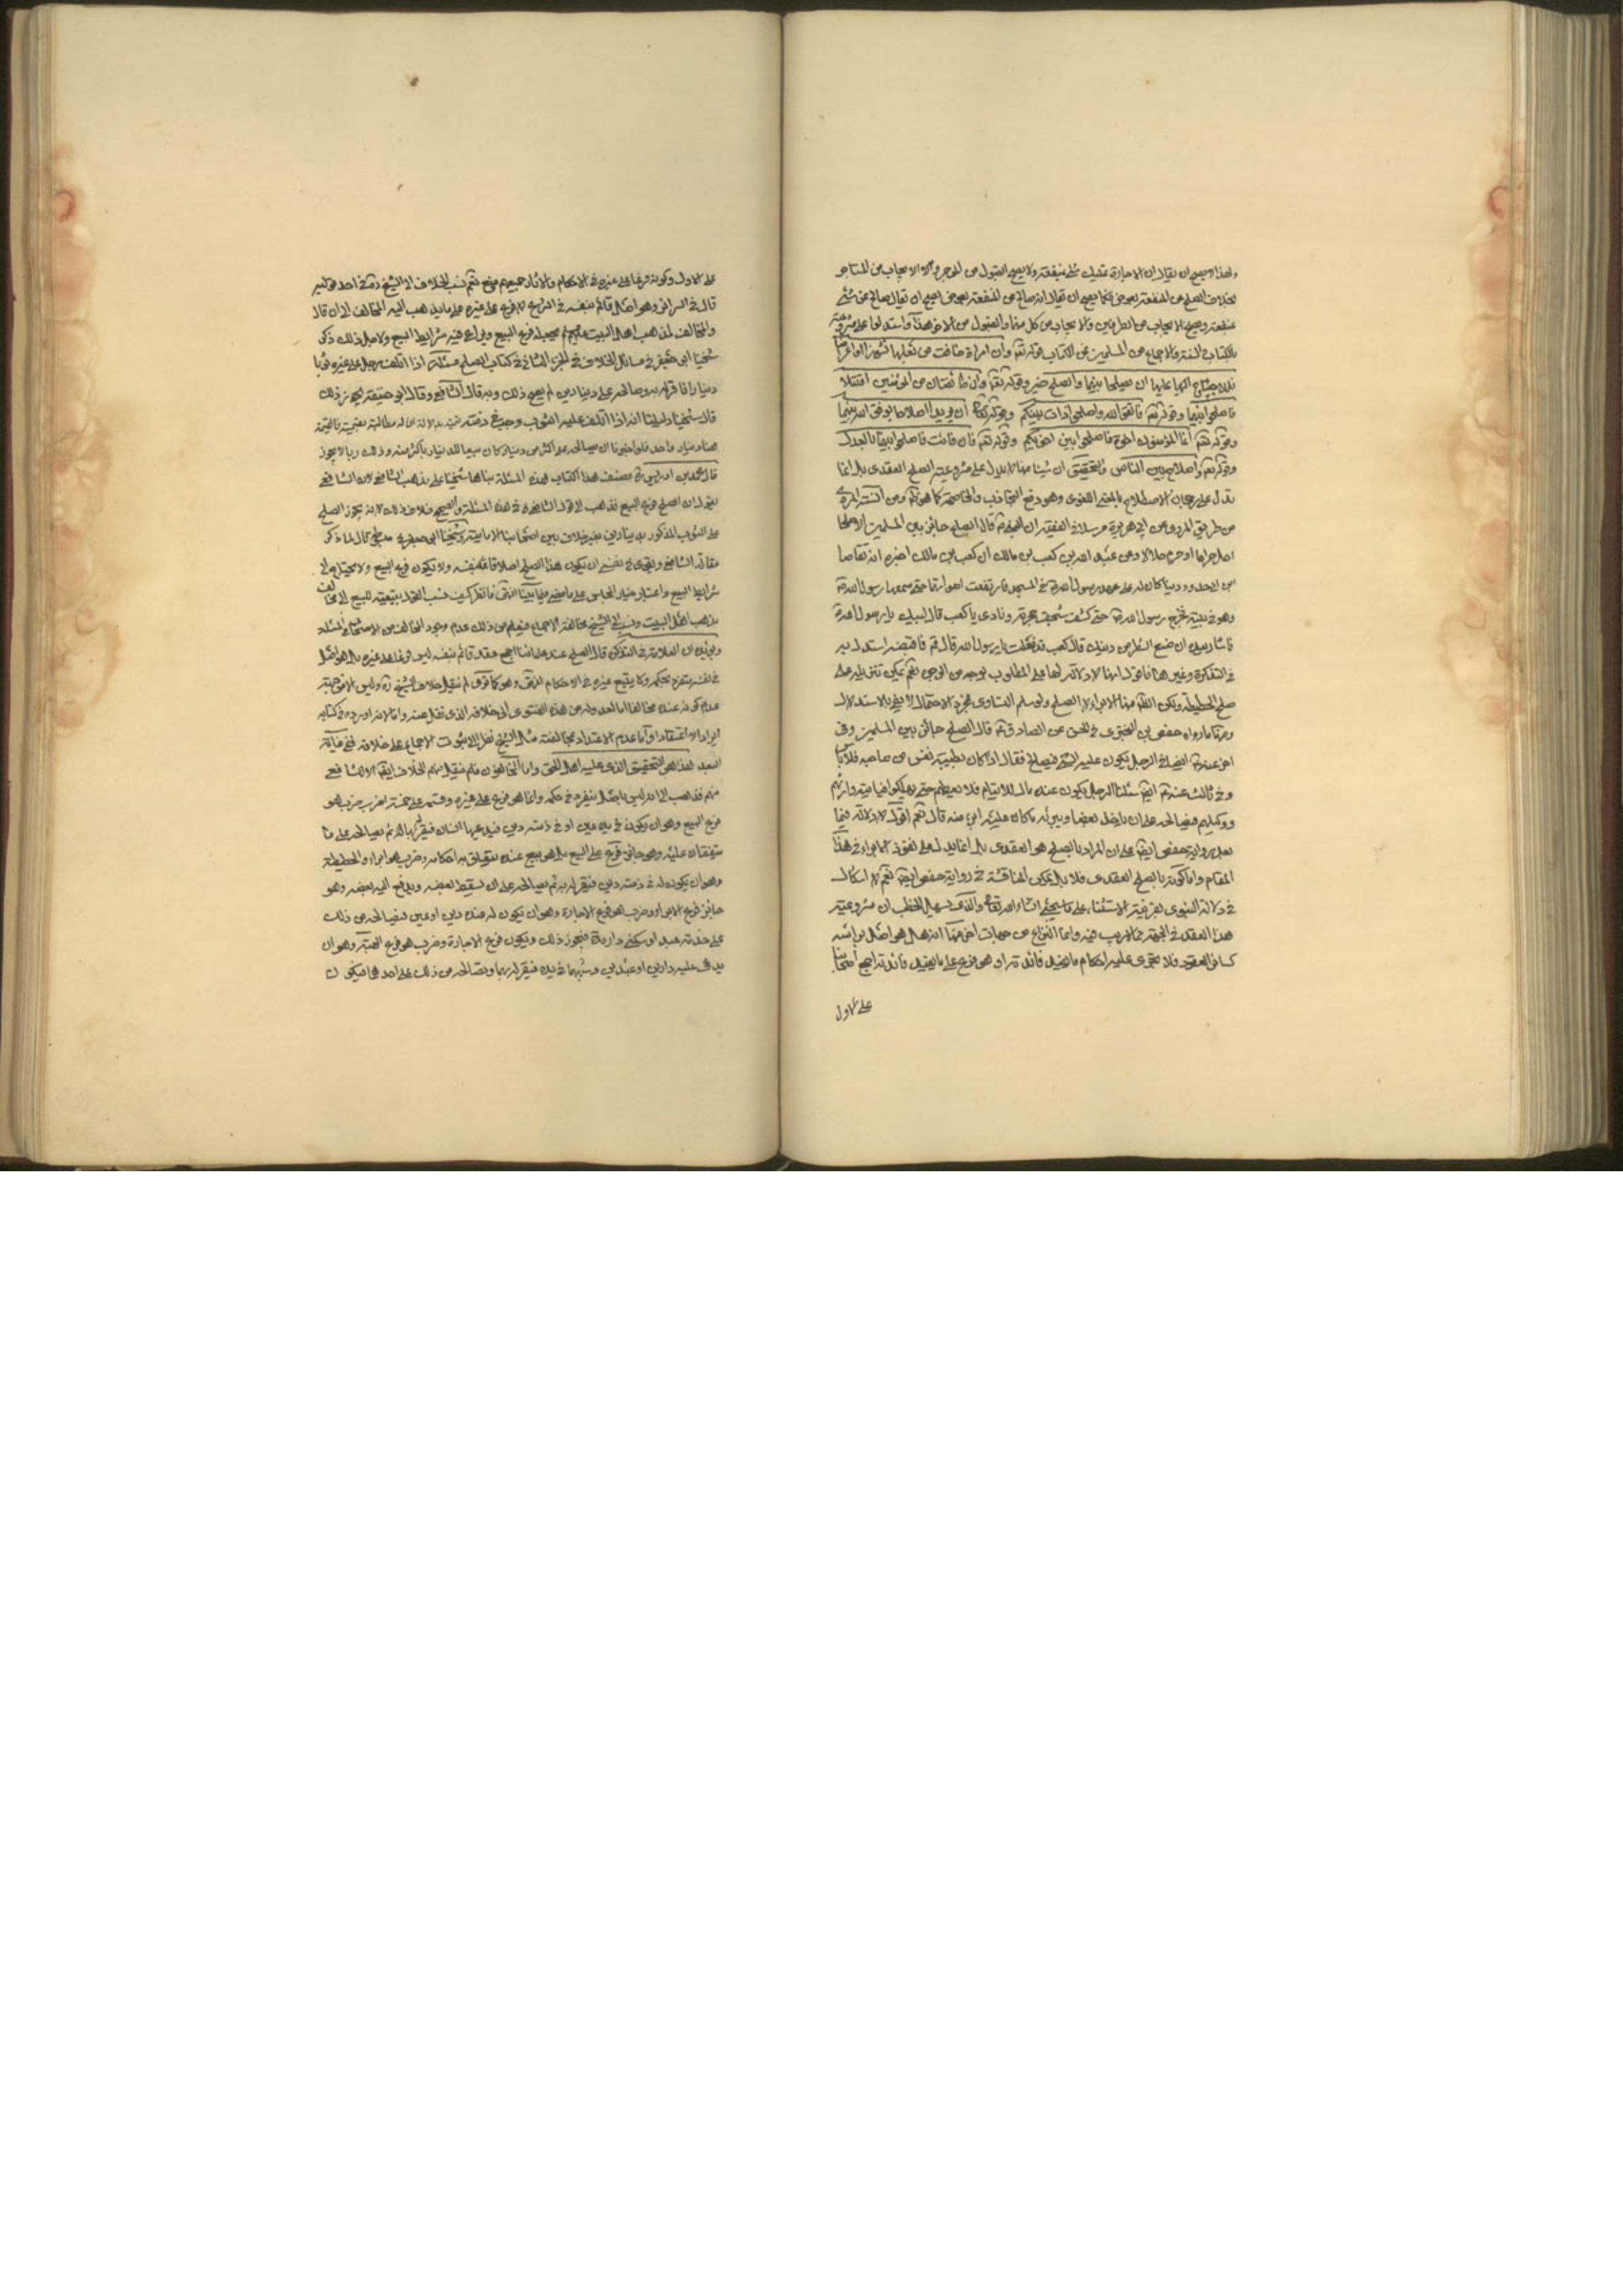 ولهذا لا يصح ان يقال ان الاجارة تمليك شيء بمنفعة ولا يصح القبول من الموجر والايجاب من المستاجر
بخلاف الصلح عن المنفعة بعوض فكما يصح ان يقال انه صالح عن المنفعة بعوض يصح ان يقال صالح عن شيء
بمنفعة ويصح الايجاب من الطرفين والايجاب من كل منهما والقبول من الاخر هذا واستدلوا على مشروعيته
بالكتاب والسنة والاجماع من المسلمين فمن الكتاب قوله تعم وان امراة خافت من بعلها نشوزا او اعراضا
فلا جناح عليهما ان يصلحا بينهما والصلح خير وقوله تعم وان طائفتان من المؤمنين اقتتلا
فاصلحوا بينهما وقوله تعم فاتقوا الله واصلحوا ذات بينكم وقوله تعالى ان يريدا اصلاحا يوفق الله بينهما
وقوله تعم انما المؤمنون اخوة فاصلحوا بين اخويكم وقوله تعم فان فائت فاصلحوا بينهما بالعدل
وقوله تعم او اصلاح بين الناس والتحقيق ان شيئا منها لا يدل على مشروعية الصلح العقدي بل انما
تدل على رجحان الاصطلاح بالمعنى اللغوي وهو رفع التجاذب والمخاصمة كما هو ومن السنة المروي
من طريق المروي عن ابي هريرة مرسلا في الفقيه ان النبي ص قال الصلح جائز بين المسلمين الا صلحا
احل حراما او حرم حلالا وعن عبد الله بن كعب بن مالك ان كعب بن مالك اخبره انه تقاضا
من ابن حدرد دينا كان له على عهد رسول الله ص في المسجد فارتفعت اصواتهما حتى سمعها رسول الله ص
وهو في بيته فخرج رسول الله ص حتى كشف سجف حجرته ونادى يا كعب قال لبيك يا رسول الله ص
فاشار بيده ان ضع الشطر من دينك قال كعب قد فعلت يا رسول الله قال قم فاقضه استدل به
في التذكرة وغيرها فاقول انها لا دلالة لها على المطلوب بوجه من الوجوه نعم يمكن تنزيله على
صلح الحطيطة ولكن الظم منها الابراء لا الصلح ولو سلم التساوي فمجرد الاحتمال لا يفي بالاستدلال
ومنها ما رواه حفص بن البختري في الحسن عن الصادق ع قال الصلح جائز بين المسلمين وفي
اخر عنه ع ايضا في الرجل يكون عليه الشيء فيصالح فقال اذا كان بطيبة نفس من صاحبه فلا باس
وفي ثالث عنه ع ايضا سئل الرجل يكون عنده مال لايتام فلا يعطيهم حتى يهلكوا فياتيه وارثهم
ووكيلهم فيصالحه على ان ياخذ بعضا ويبرئه مما كان عليه ايبرء منه قال نعم اقول لا دلالة فيما
بعد رواية حفص ايضا على ان المراد بالصلح هو العقدي بل انما يدل على نفوذ الابراء في هذا
المقام واما كونه بالصلح العقدي فلا بل يمكن المناقشة في رواية حفص ايضا نعم لا اشكال
في دلالة النبوي بقرينة الاستثناء على ما يجيء انشاء الله تعالى والذي يسهل الخطب ان مشروعية
هذا العقد في الجملة مما لا ريب فيه وانما النزاع من جهات اخر منها انه هل هو اصل براسه
كسائر العقود فلا يجري عليه احكام ما يفيد فائدته او هو فرع على ما يفيد فائدته اجمع اصحابنا
على الاول
على الاول وكونه فرعا على غيره في الاحكام والاثار جميعهم منع نعم نسب الخلاف الى الشيخ ره في احد قوليه
قال في السرائر وهو اصل قائم بنفسه في الشرع لا فرع على غيره على ما يذهب اليه المخالف الى ان قال
والمخالف لمذهب اهل البيت عليهم السلم يجعله فرع البيع ويراعي فيه شرائط البيع ولاجل ذلك ذكر
شيخنا ابي جعفر في مسائل الخلاف في الجزء الثاني في كتاب الصلح مسئلة اذا اتلف رجل على غيره ثوبا
دينارا فاقر له به وصالحه على دينارين لم يصح ذلك وبه قال الشافعي وقال ابو حنيفة يجوز ذلك
قال شيخنا دليلنا انه اذا اتلف عليه الثوب وجب في ذمته قيمته بدلالة ان له مطالبته بقيمته فالقيمة
هنا دينار واحد فلو اجزنا ان يصالحه على اكثر من دينار كان بيعا للدينار باكثر منه وذلك ربا لا يجوز
قال محمد بن ادريس ره مصنف هذا الكتاب هذه المسئلة بناها شيخنا على مذهب الشافعي لان الشافعي
يقول ان الصلح فرع البيع فذهب الى قول الشافعي في هذه المسئلة والصحيح خلاف ذلك لانه يجوز الصلح
على الثوب المذكور بدينارين بغير خلاف بين اصحابنا الامامية وشيخنا ابي جعفر
مقالة الشافعي ويقوى في نفسي ان يكون هذا الصلح اصلا قائما بنفسه ولا يكون فرع البيع ولا يحتاج الى
شرائط البيع واعتبار خيار المجلس على ما مضى فيما بينا انتهى فانظر كيف نسب القول بتبعيته للبيع الى مخالف
مذهب اهل البيت ونسب الى الشيخ مخالفة الاجماع فيعلم من ذلك عدم وجود المخالف من الاصحاب في المسئلة
ويؤيده ان العلامة في التذكرة قال الصلح عند علمائنا اجمع عقد قائم بنفسه ليس فرعا على غيره بل هو اصل
في نفسه منفرد بحكمه ولا يتبع غيره في الاحكام انتهى وهو كما ترى لم ينقل خلاف الشيخ ره وليس الا من جهة
عدم كونه عنده مخالفا اما لعدوله من هذه الفتوى الى خلافه الذي نقل عنه واما لانه اورده في كتابه
ايرادا لا اعتقادا واما عدم الاعتداد بمخالفة مثل الشيخ نظرا الى ثبوت الاجماع على خلافه ففي غاية
البعد هذا هو التحقيق الذي عليه اهل الحق واما المخالفون فلم ينقل منهم الخلاف ايضا الا الشافعي
منهم فذهب الى انه ليس باصل ينفرد في حكمه وانما هو فرع على غيره وقسمه على خمسة اضرب ضرب هو
فرع البيع وهو ان يكون في يده عين او في ذمته دين فيدعيها انسان فيقر له بها ثم يصالحه على ما
يتفقان عليه وهو جائز فرع على البيع بل هو بيع عنده يتعلق به احكامه وضرب هو ابراء والحطيطة
وهو ان يكون له في ذمته دين فيقر له به ثم يصالحه على ان يسقط بعضه ويدفع اليه بعضه وهو
جائز فرع الابراء وضرب هو فرع الاجارة وهو ان يكون له عنده دين او عين فيصالحه من ذلك
على خدمة عبد او سكنى دار مدة فيجوز ذلك ويكون فرع الاجارة وضرب هو فرع الهبة وهو ان
يدعي عليه دارين او عبدين وشبههما في يده فيقر له بهما ويصالحه من ذلك على احدهما فيكون